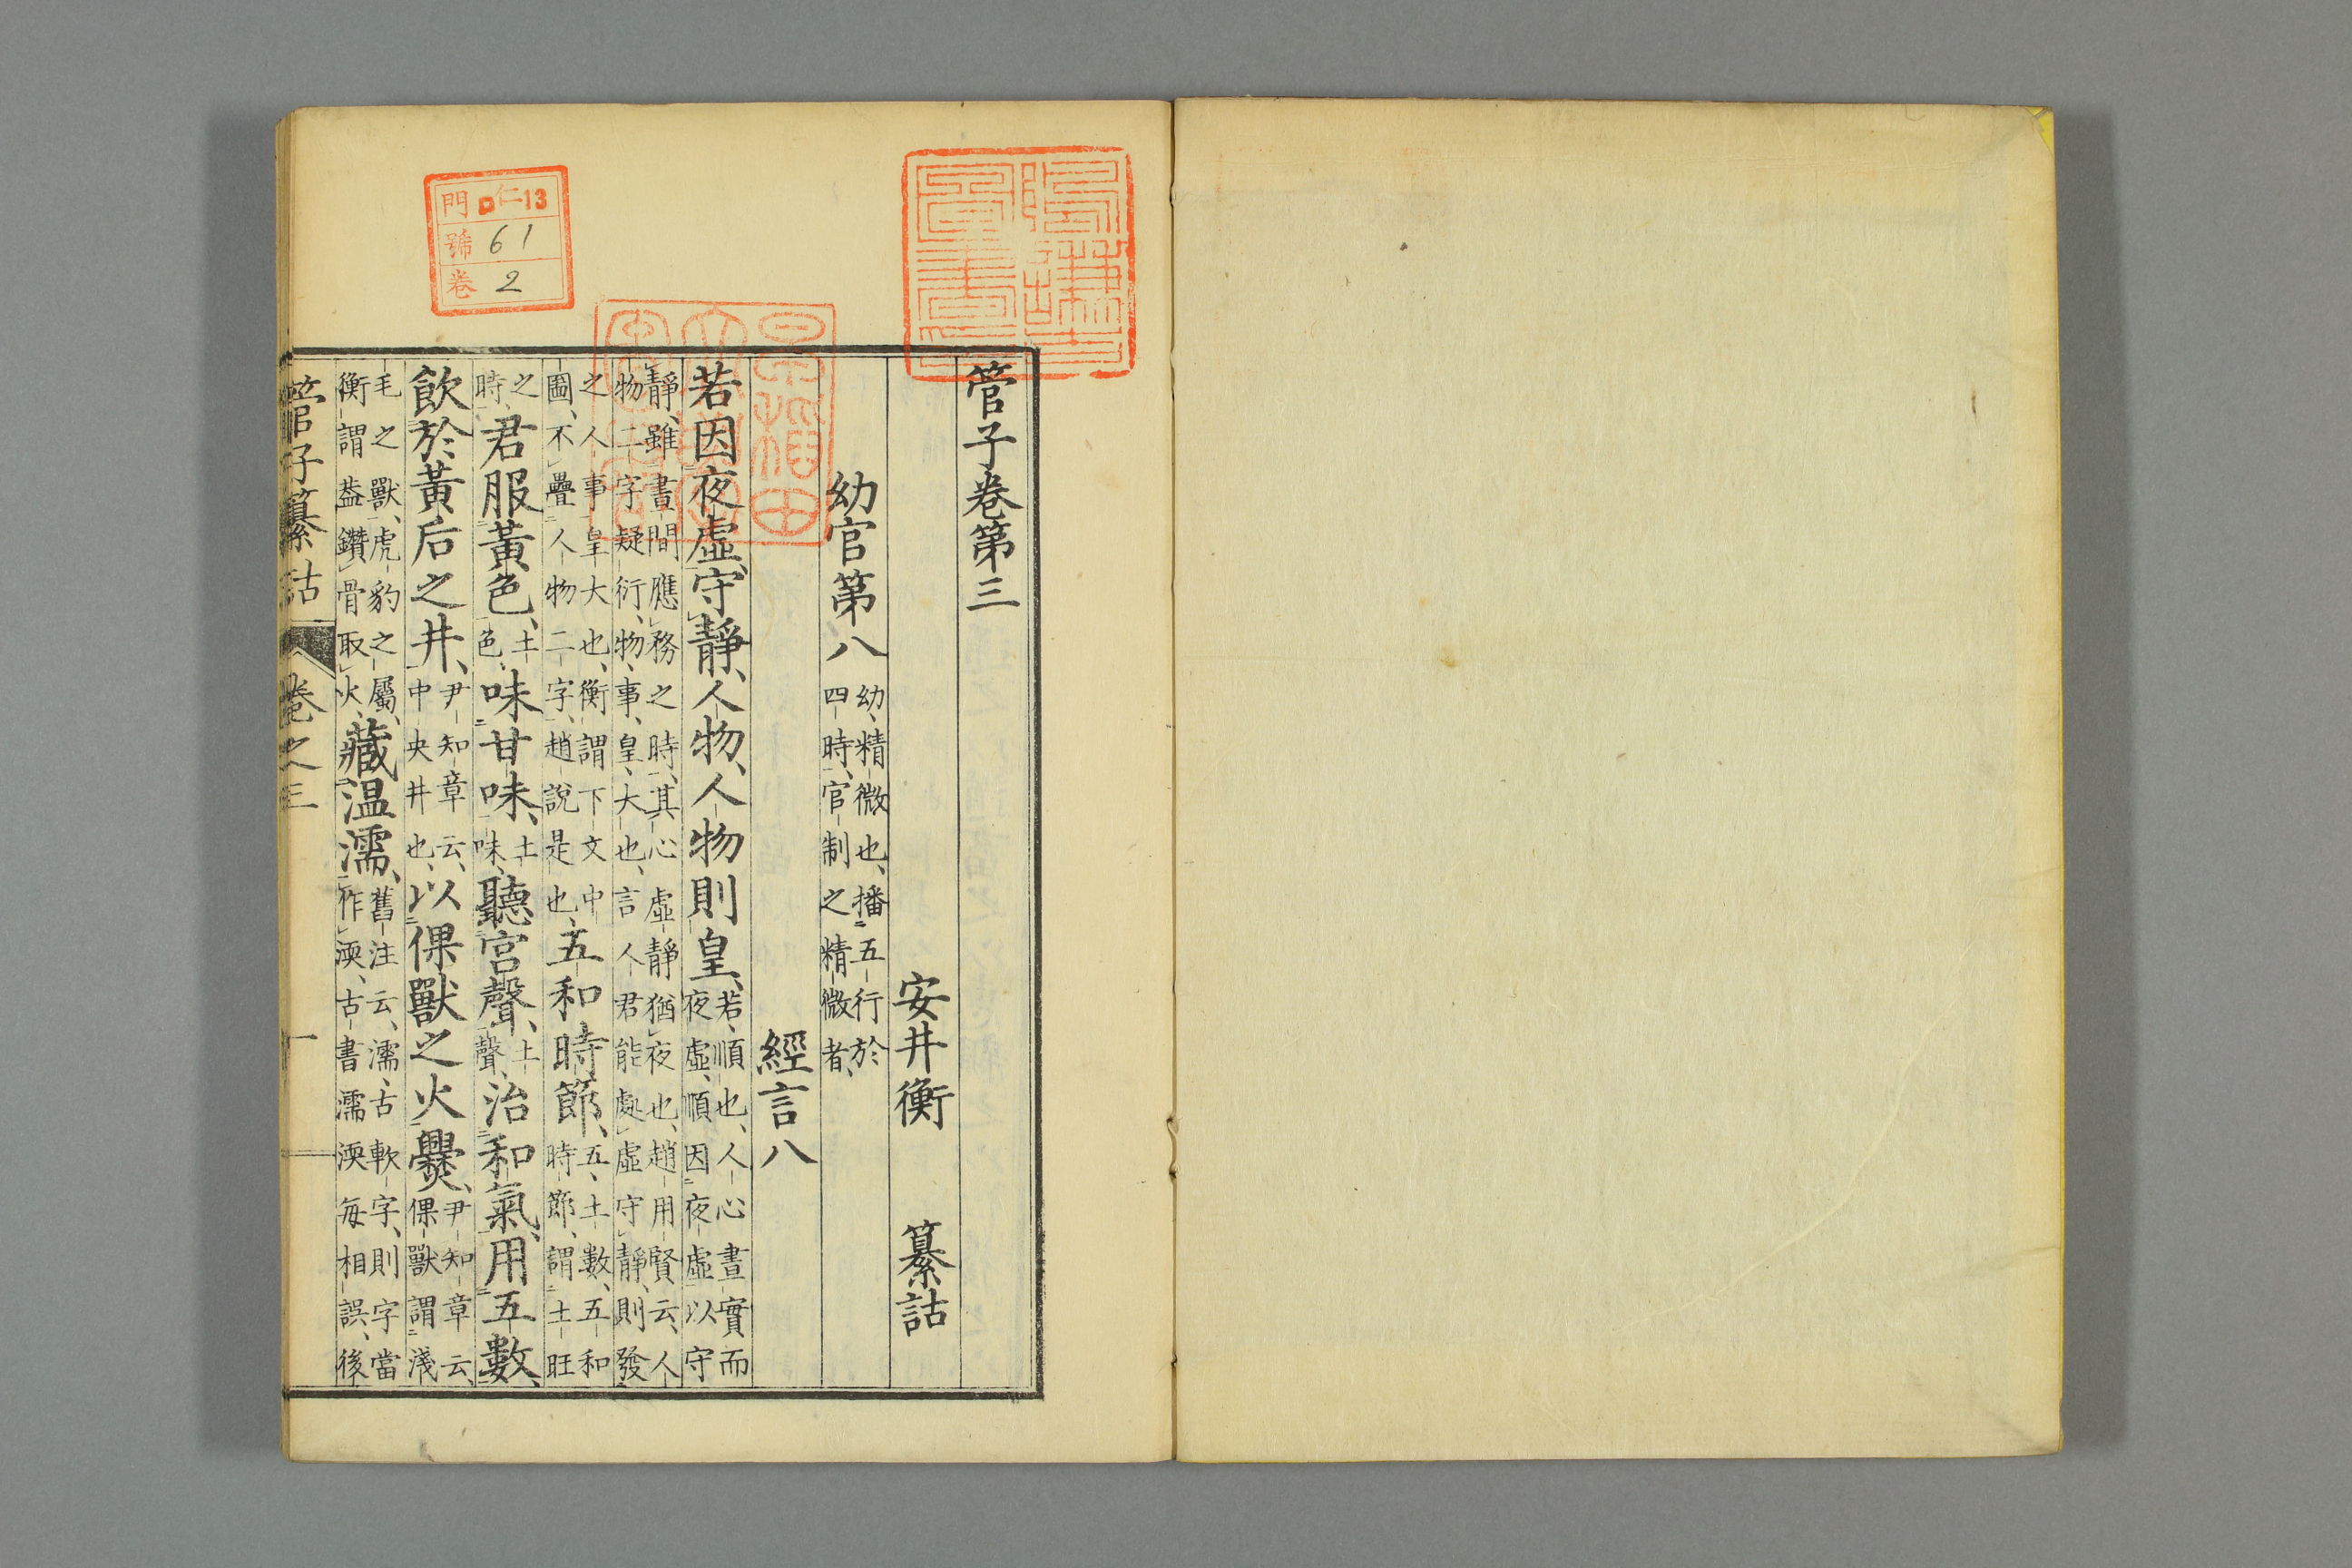 管子卷第三
安井衡　纂詁
幼官第八
幼、精微也、播五行於
四時、官制之精微者、
經言八
若因夜虛守靜、人物、人物則皇、
若、順也、人心晝實而
夜虛、順因夜虛以守
靜、雖晝間應務之時、其心虛靜猶夜也、趙用賢云、人
物二字疑衍、物、事、皇、大也、言人君能處虛守靜、則發
之人事皇大也、衡謂下文中
圖、不疊人物二字、趙說是也、
五和時節、
五、土數、五和
時節、謂土旺
之
時、
君服黃色、
土
色、
味甘味、
土
味、
聽宮聲、
土
聲、
治和氣、用五數、
飲於黃后之井、
尹知章云、
中央井也、
以倮獸之火爨、
尹知章云、
倮獸謂淺
毛之獸、虎豹之屬、
衡謂葢鑽骨取火、
藏溫濡、
舊注云、濡、古軟字、則字當
作渜、古書濡渜每相誤、後
管子纂詁　卷之三　一
門 ロ仁13
號 61
卷 2